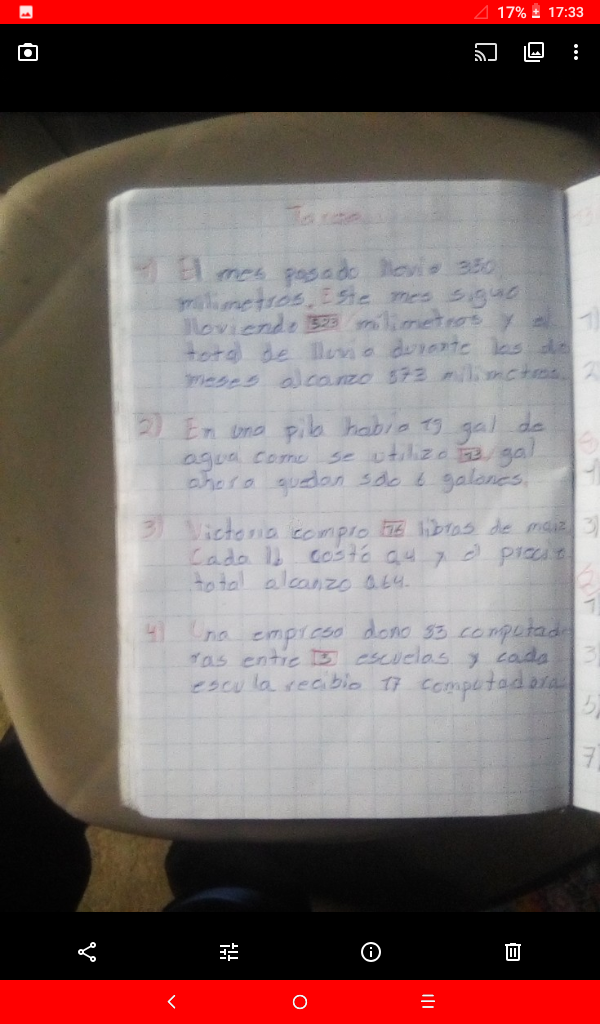 17% 17:33
Tarea
1) El mes pasado llovio 350
milimetros. Este mes siguio
lloviendo 523 milimetros y el
total de lluvia durante los do
meses alcanzo 873 milimetros.
2) En una pila habia 19 gal de
agua como se utilizo 13 gal
ahora quedan solo 6 galones.
3) Victoria compro 16 libras de maiz
Cada lb costó Q4 y el precio
total alcanzo Q64.
4) Una empresa dono 85 computado
ras entre 5 escuelas y cada
escula recibio 17 computadoras
1)
2
1)
3)
1)
3)
5)
7)